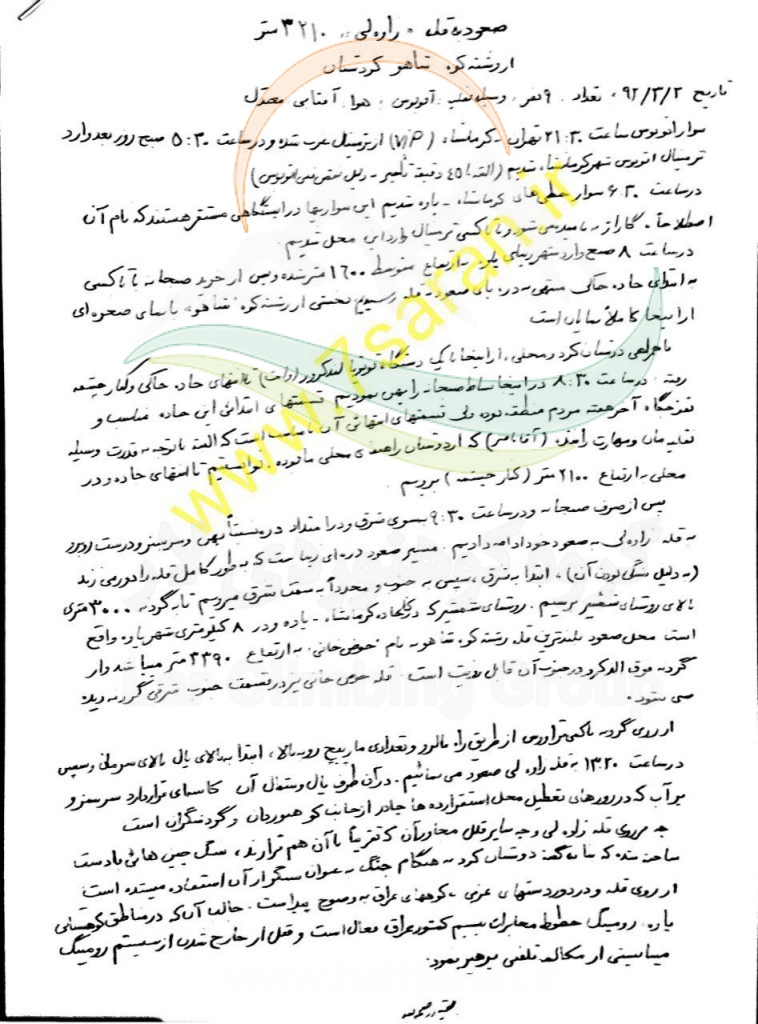 صعود به قله « زاوه لی » ۳۲۱۰ متر
از رشته کوه شاهو کردستان
تاریخ ۹۲/۳/۲ ، تعداد ۹ نفر ، وسیله نقلیه : اتوبوس ، هوا : آفتابی معتدل
سوار اتوبوس ساعت ۲۱:۳۰ تهران - کرمانشاه (VIP) از ترمینال غرب شده و در ساعت ۵:۳۰ صبح روز بعد وارد
ترمینال اتوبوس شهر کرمانشاه شدیم (البته با ۴۵ دقیقه تأخیر - دلیل نقص فنی اتوبوس)
در ساعت ۶:۳۰ سوار خطی های کرمانشاه - پاوه شدیم این سواریها در ایستگاهی مستقر هستند که نام آن
اصطلاحاً گاراژ نامیده می شود و با تاکسی ترمینال وارد این محل شدیم .
در ساعت ۸ صبح وارد شهر زیبای پاوه به ارتفاع متوسط ۱۶۰۰ متر شده و پس از خرید صبحانه با تاکسی
به ابتدای جاده خاکی منتهی به دره پای صعود - قله رسیدیم بخشی از رشته کوه شاهو با نمای صخره ای
از اینجا کاملاً نمایان است
با همراهی دوستان کرد و محلی ، از اینجا با یک دستگاه تویوتا لندکروز (وانت) تا انتهای جاده خاکی و کنار چشمه
رفته ، در ساعت ۸:۳۰ در اینجا بساط صبحانه را پهن نمودیم قسمتهای ابتدائی این جاده مناسب و
تفرجگاه آخر هفته مردم منطقه بوده ولی قسمتهای انتهائی آن نامناسب است که البته با توجه به قدرت وسیله
نقلیه مان و مهارت راننده (آقا ناصر) که از دوستان راهنمای محلی ما بوده ، توانستیم تا انتهای جاده و در
محلی به ارتفاع ۲۱۰۰ متر (کنار چشمه) برویم .
پس از صرف صبحانه و در ساعت ۹:۳۰ بسوی شرق و در امتداد دره نسبتاً پهن و سرسبز و درست روبرو
به قله زاوه لی به صعود خود ادامه دادیم . مسیر صعود دره ای زیباست که به طور کامل قله را دور می زند
(به دلیل سنگی بودن آن) ، ابتدا به شرق ، سپس به جنوب و مجدداً به سمت شرق میرویم تا به گردنه ۳۰۰۰ متری
بالای روستای شمشیر برسیم . روستای شمشیر که در جاده کرمانشاه - پاوه و در ۸ کیلومتری شهر پاوه واقع
است محل صعود بلندترین قله رشته کوه شاهو به نام حوض خانی به ارتفاع ۳۳۹۰ متر میباشد و از
گردنه فوق الذکر و در جنوب آن قابل رویت است . قله حوض خانی نیز در قسمت جنوب شرقی گردنه دیده
می شود .
از روی گردنه با کمی تراورس از طریق راه مالرو و تعدادی مارپیچ رو به بالا ، ابتدا به بالای یال بالای سرمان و سپس
در ساعت ۱۳:۲۰ به قله زاوه لی صعود می نمائیم . در آن طرف یال و شمال آن کاسه ای قرار دارد سرسبز و
پر آب که در روزهای تعطیل محل استقرار ده ها چادر از جانب کوهنوردان و گردشگران است
بر روی قله زاوه لی و چه سایر قلل مجاور آن که تقریباً با آن هم ترازند ، سنگ چین هائی با دست
ساخته شده که بنا به گفته دوستان کرد به هنگام جنگ به عنوان سنگر از آن استفاده میشده است
از روی قله و در دوردستهای غربی ، کوههای عراق به وضوح پیداست . جالب آن که در مناطق کوهستانی
پاوه . رومینگ خطوط مخابرات بیسیم کشور عراق فعال است و قبل از خارج شدن از سیستم رومینگ
میبایستی از مکالمه تلفنی پرهیز نمود .
www.7saran.ir
Climbing Group